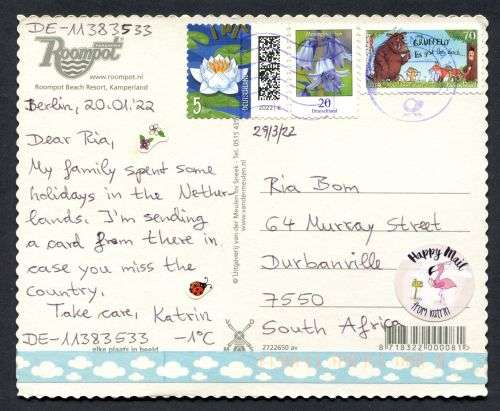 DE-11383533
Roompot
www.roompot.nl
Roompot Beach Resort, Kamperland
Berlin, 20.01.'22
Dear Ria,
My family spent some
holidays in the Nether-
lands. I'm sending
a card from there in
case you miss the
country.
Take care, Katrin
DE-11383533 -1°C
elke plaats in beeld
© Uitgeverij van der Meulen bv Sneek - Tel. 0515
www.vandermeulen.nl
2722650 av
5
DEUTSCHLAND
2022
20
Deutschland
70
GRÜFFELO
29/3/22
Ria Bom
64 Murray Street
Durbanville
7550
South Africa
Happy Mail
from Katrin
8 718322 000081